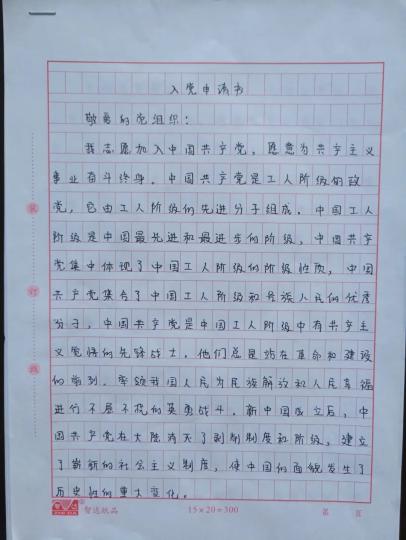 入党申请书
敬爱的党组织:
我志愿加入中国共产党,愿意为共产主义
事业奋斗终身。中国共产党是工人阶级的政
党,它由工人阶级的先进分子组成。中国工人
阶级是中国最先进和最进步的阶级,中国共产
党集中体现了中国工人阶级的阶级性质,中国
共产党集合了中国工人阶级和各族人民的优秀
分子,中国共产党是中国工人阶级中有共产主
义觉悟的先锋战士,他们总是站在革命和建设
的前列,率领我国人民为民族解放和人民幸福
进行不屈不挠的英勇战斗。新中国成立后,中
国共产党在大陆消灭了剥削制度和阶级,建立
了崭新的社会主义制度,使中国的面貌发生了
历史性的重大变化。
装
订
线
智达纸品
15×20=300
第 页